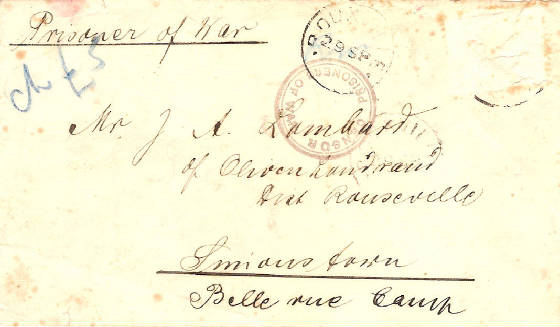 Prisoner of War
ROU
29 SP
CENSOR
PRISONERS OF WAR
Mr. J A. Lombard
of Olivenhoudrand
Dist Rouxeville
Simonstown
Belle vue Camp